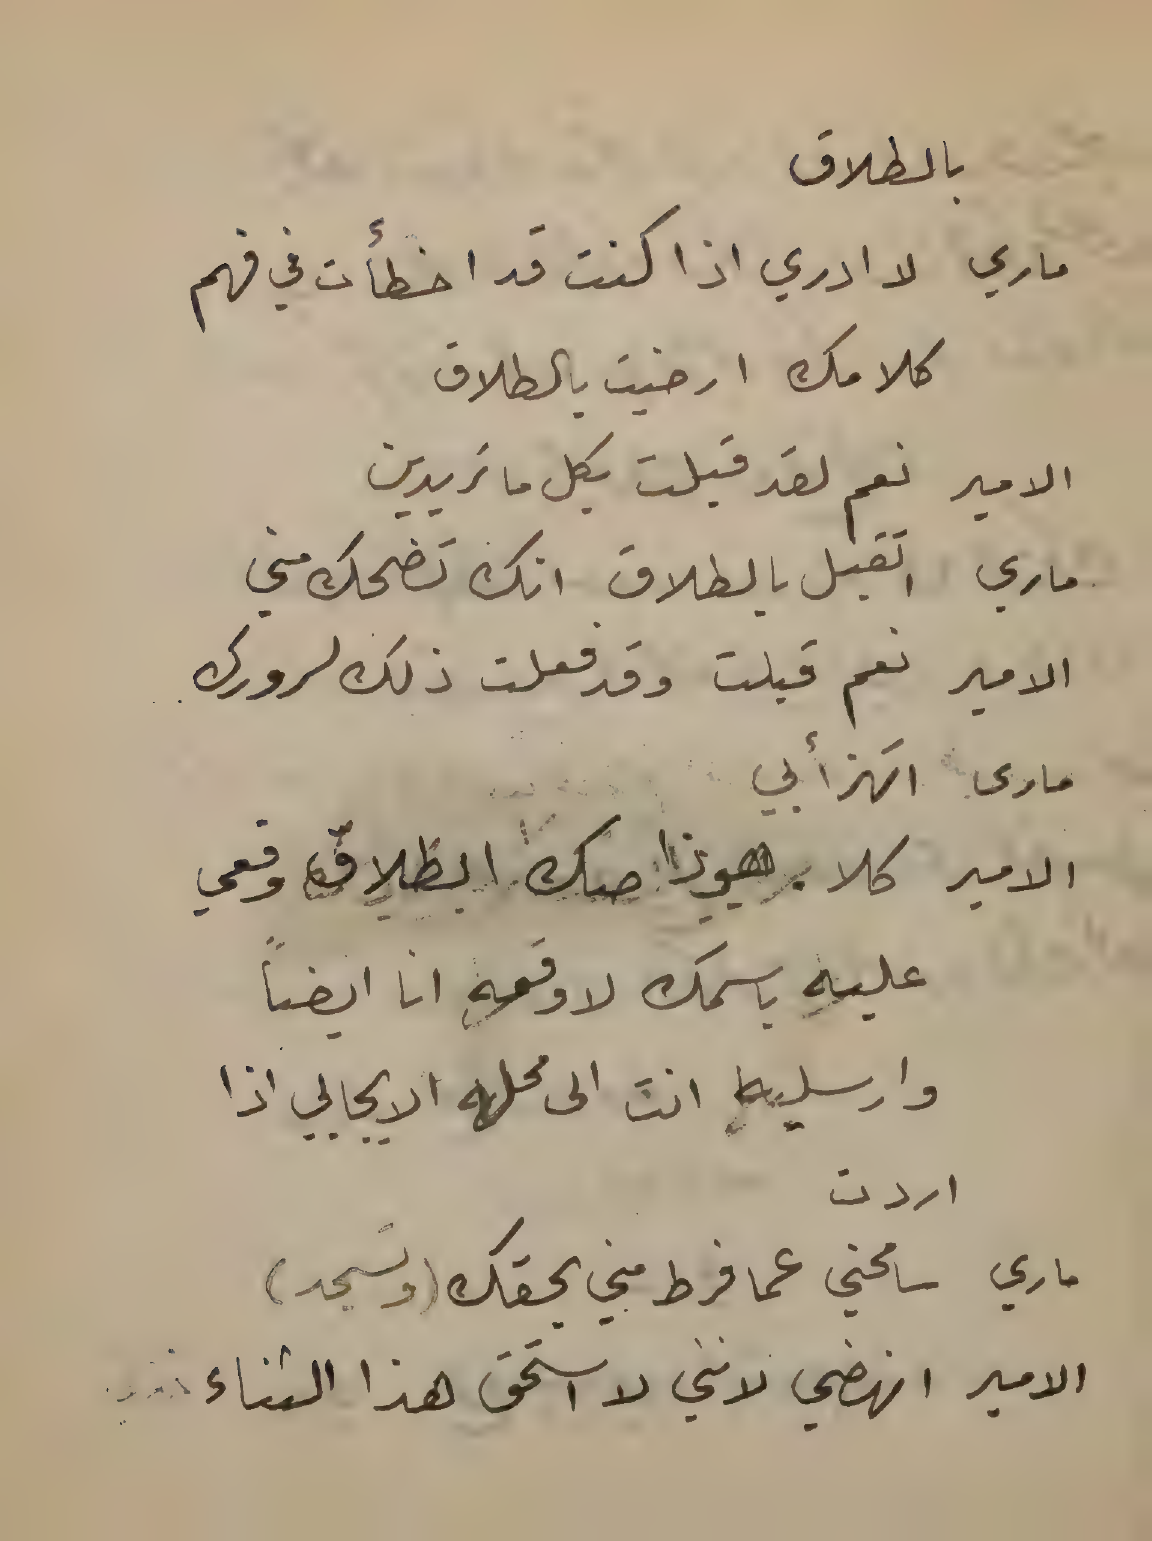 بالطلاق
ماري لا ادري اذا كنت قد اخطأت في فهم
كلامك ارضيت بالطلاق
الامير نعم لقد قبلت بكل ما تريدين
ماري اتقبل بالطلاق انك تضحك مني
الامير نعم قبلت وقد فعلت ذلك لسرورك
مارى اتهزأ بي
الامير كلا هوذا صك الطلاق وقعي
عليه باسمك لاوقعه انا ايضاً
وارسليه انت الى محله الايجابي اذا
اردت
ماري سامحني عما فرط مني بحقك (وتسجد)
الامير انهضي لانني لا استحق هذا الثناء